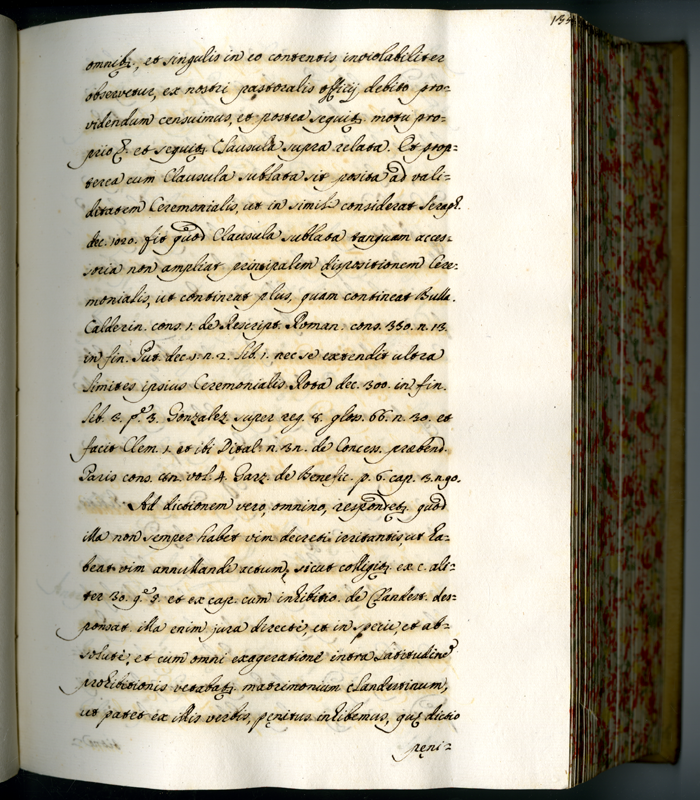 omnibꝫ, et singulis in eo contentis inviolabiliter
observetur, ex nostri pastoralis officij debito pro=
videndum censuimus, et postea sequitꝫ motu pro=
prio &. et sequitꝫ Clausula supra relata. Et prop=
terea cum Clausula sublata sit posita ad vali=
ditatem Ceremonialis, ut in simili considerat Seraph.
dec. 1020. fit quod Clausula sublata tanquam acces=
soria non ampliat principalem dispositionem Cere=
monialis, ut contineat plus, quam contineat Bulla.
Calderin. cons. 1. de Rescript. Roman. cons. 350. n. 13.
in fin. Put. dec. 1. n. 2. lib. 1. nec se extendit ultra
limites ipsius Ceremonialis Rota dec. 300. in fin.
lib. 3. p.e 3. Gonzalez super reg. 8. glos. 66. n. 30. et
facit Clem. 1. et ibi Vital. n. 3n. de Concess. prabend.
Paris cons. vol. 4. Garz. de Benefic. p. 6. cap. 3. n. 90.
Ad dictionem vero, omnino, respondetꝫ quod
illa non semper habet vim decreti irritantis, ut ha=
beat vim annullandi actum, sicut colligitꝫ ex c. ali=
ter 30. q.e 5. et ex cap. cum inhibitio. de Clandest. des=
ponsat. illa enim jura directè, et in specie, et ab=
solutè, et cum omni exageratione intra latitudinē
prohibitionis vetabatꝫ matrimonium clandestinum,
ut patet ex illis verbis, penitus inhibemus, quę dictio
peni=